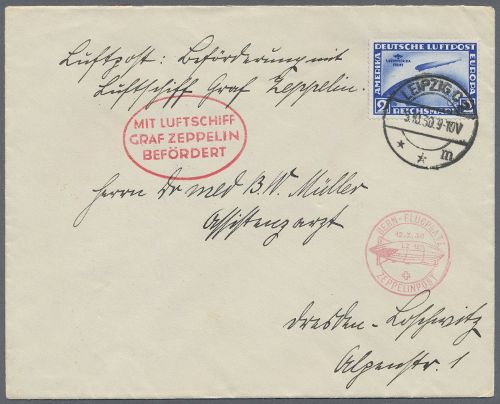 Luftpost: Beförderung mit
Luftschiff Graf Zeppelin.
DEUTSCHE LUFTPOST
AMERIKA
EUROPA
2 REICHSMARK 2
LEIPZIG
9-10V
* * m
MIT LUFTSCHIFF
GRAF ZEPPELIN
BEFÖRDERT
Herrn Dr med B. W. Müller
Assistenzarzt
BERN-FLUGPLATZ
LZ 127
ZEPPELINPOST
Dresden-Loschwitz
Alpenstr. 1